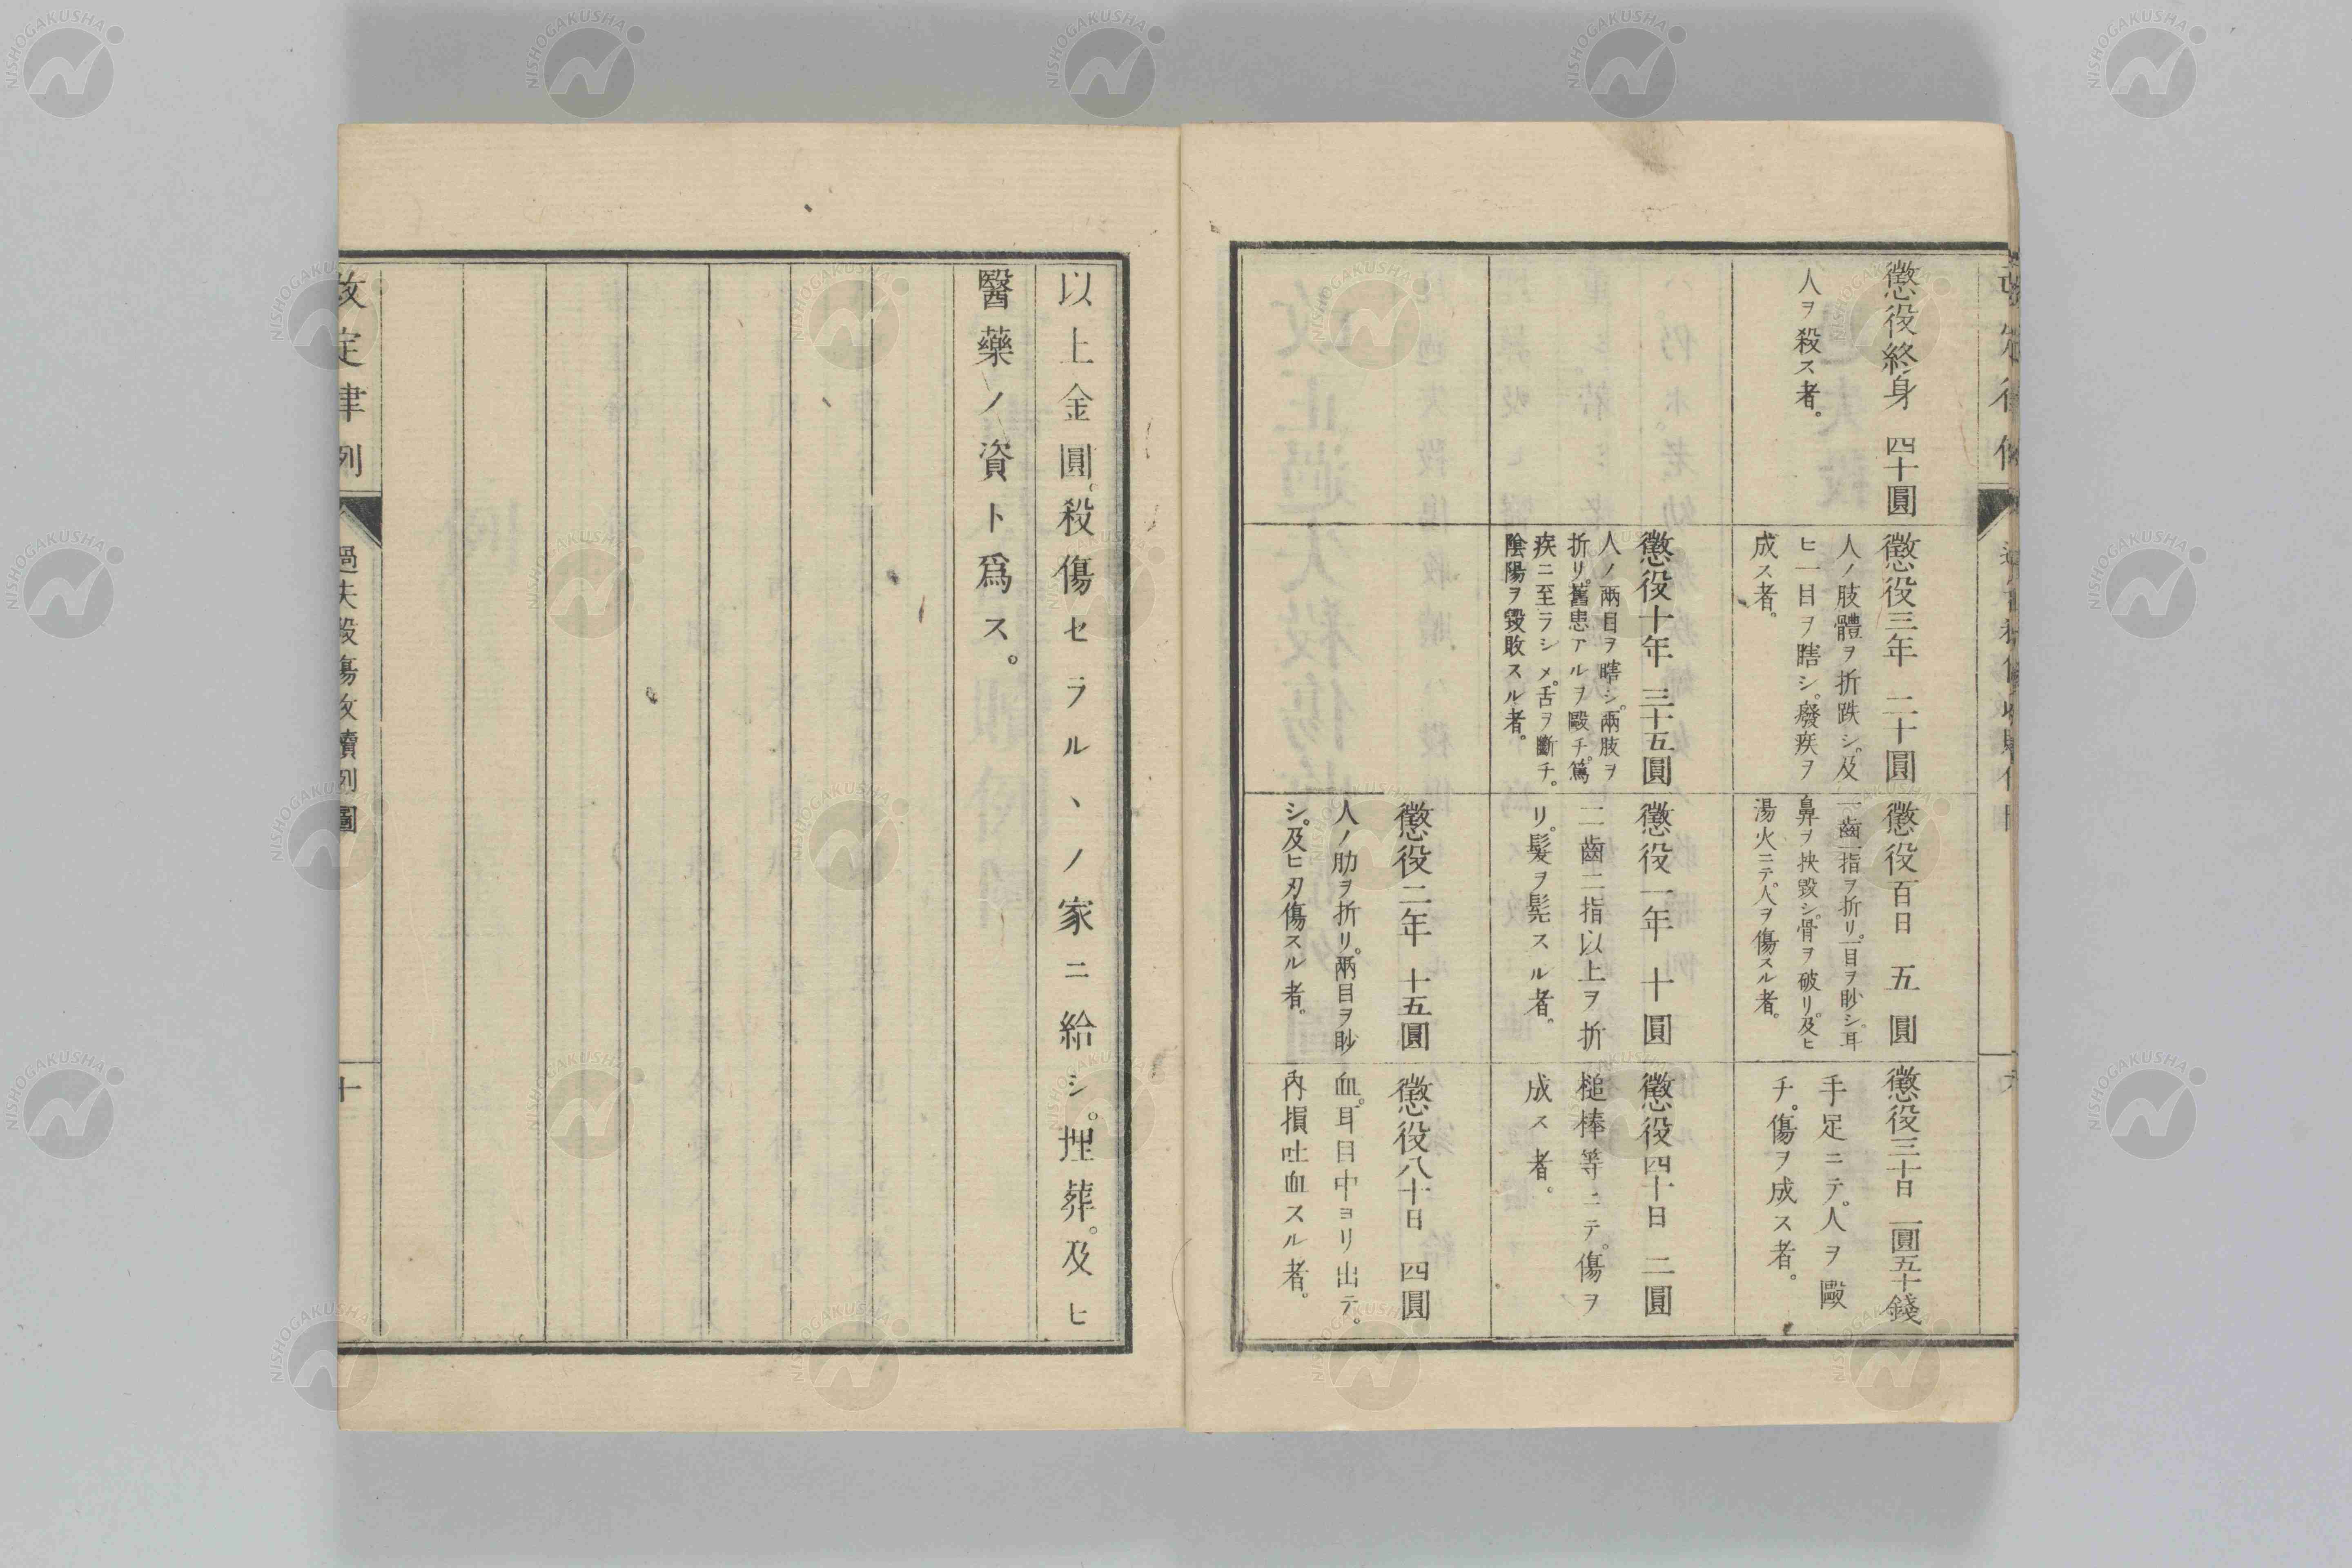 懲役終身　四十圓
人ヲ殺ス者。
懲役三年　二十圓
人ノ肢體ヲ折跌シ。及
ヒ一目ヲ瞎シ。癈疾ヲ
成ス者。
懲役百日　五圓
一齒一指ヲ折リ。一目ヲ眇シ。耳
鼻ヲ抉毀シ。骨ヲ破リ。及ヒ
湯火ニテ。人ヲ傷スル者。
懲役三十日　一圓五十錢
手足ニテ。人ヲ毆
チ。傷ヲ成ス者。
懲役十年　三十五圓
人ノ兩目ヲ瞎シ。兩肢ヲ
折リ。舊患アルヲ毆チ。篤
疾ニ至ラシメ。舌ヲ斷チ。
陰陽ヲ毀敗スル者。
懲役一年　十圓
二齒二指以上ヲ折
リ。髮ヲ髡スル者。
懲役四十日　二圓
槌棒等ニテ。傷ヲ
成ス者。
懲役二年　十五圓
人ノ肋ヲ折リ。兩目ヲ眇
シ。及ヒ刃傷スル者。
懲役八十日　四圓
血。耳目中ヨリ出テ。
內損吐血スル者。
以上金圓。殺傷セラルヽノ家ニ給シ。埋葬。及ヒ
醫藥ノ資ト爲ス。
改定律例
過失殺傷收贖例圖
十
NISHOGAKUSHA